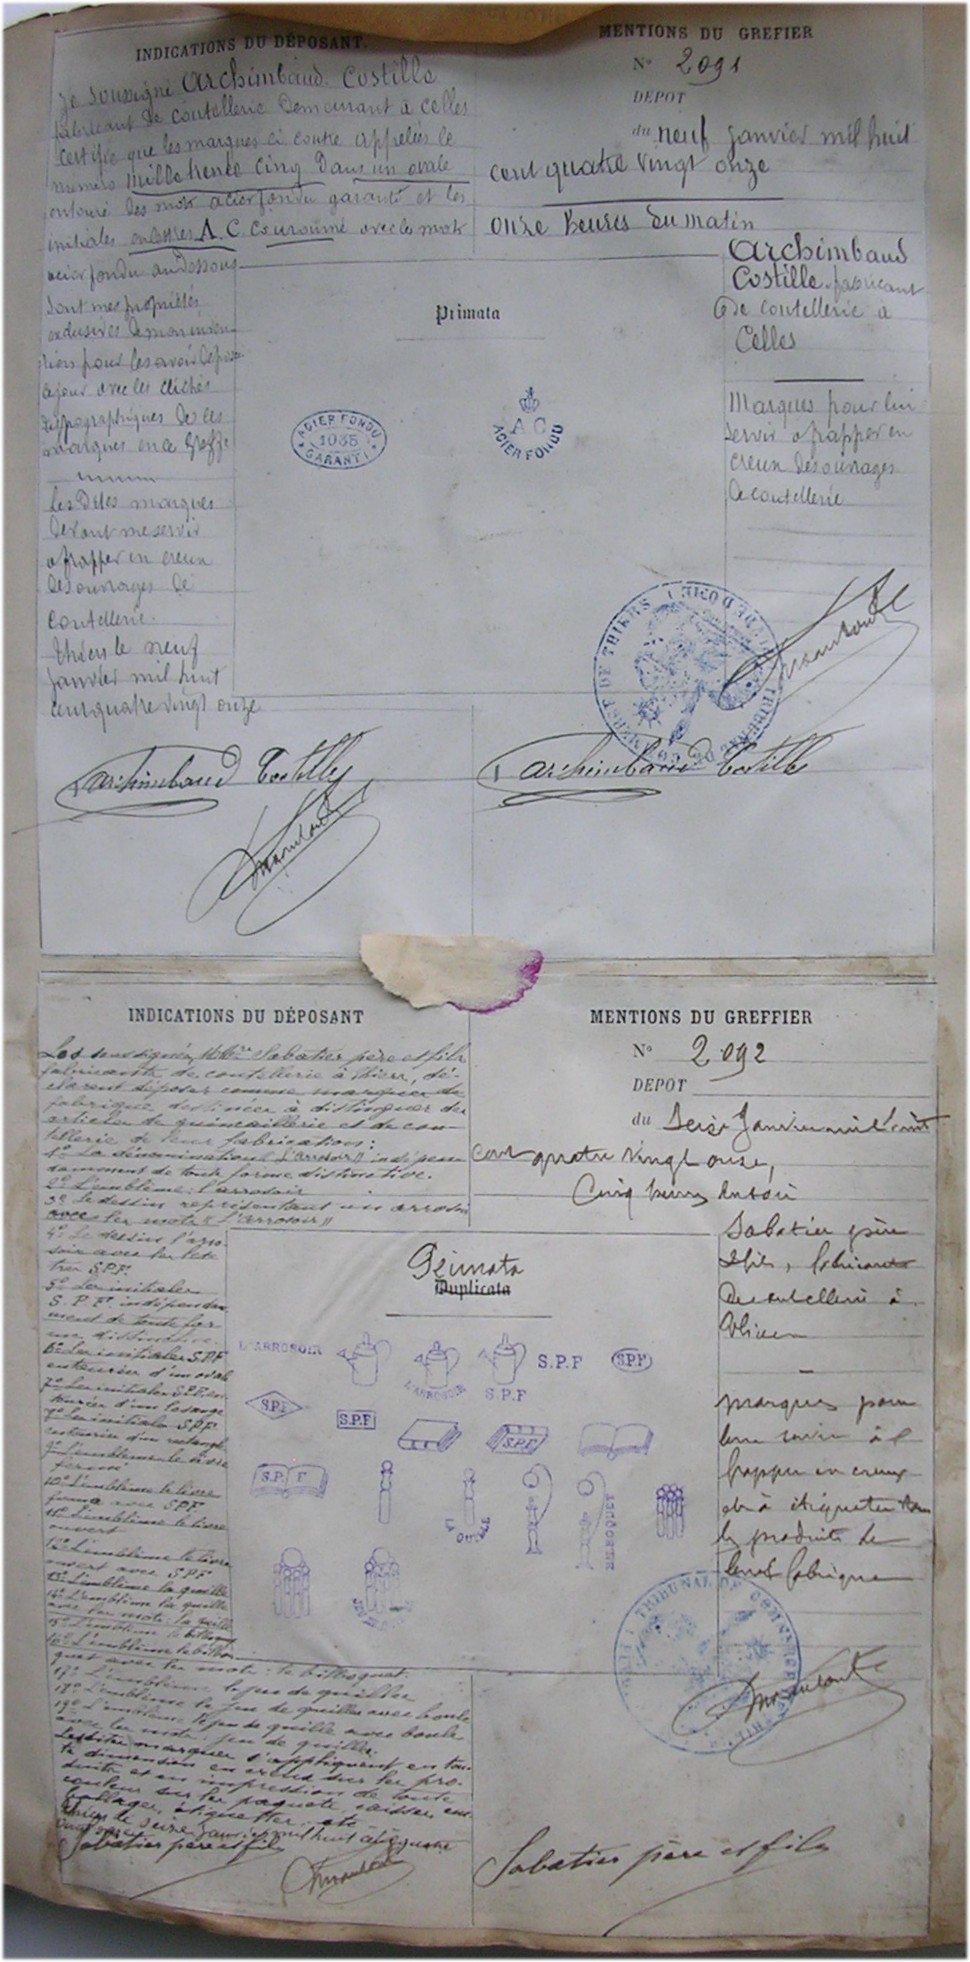 INDICATIONS DU DÉPOSANT.
Je soussigné Archimbaud Costille
fabricant de coutellerie Demeurant à Celles
certifie que les marques ci contre appelées le
numéro mille trente cinq Dans un ovale
entouré des mots acier fondu garanti et les
initiales enlettres A. C. Couronné avec les mots
acier fondu au Dessous
sont mes propriétés
exclusives de mon inven
tions pour les avoir déposé
ce jour avec les clichés
typographiques de ces
marques en ce Greffe
Les Dites marques
devant me servir
a frapper en creux
des ouvrages de
Coutellerie.
Thiers le neuf
janvier mil huit
cent quatre vingt onze
Archimbaud Costille
MENTIONS DU GREFIER
N° 2091
DEPOT
du neuf janvier mil huit
cent quatre vingt onze
onze heures du matin
Archimbaud
Costille fabricant
de coutellerie à
Celles
Marques pour lui
servir a frapper en
creux des ouvrages
de coutellerie
Primata
ACIER FONDU
1035
GARANTI
A C
ACIER FONDU
TRIBUNAL DE COMMERCE DE THIERS
Archimbaud Costille
INDICATIONS DU DÉPOSANT
Les soussignés, Sabatier père et fils
fabricants de coutellerie à Thiers, dé-
clarent déposer comme marques de
fabrique destinées à distinguer des
articles de quincaillerie et de cou-
tellerie de leur fabrication:
1° La dénomination "L'arrosoir" indépen
damment de toute forme distinctive.
2° L'emblème: l'arrosoir
3° Le dessin représentant un arrosoir
avec les mots "L'arrosoir"
4° Le dessin l'arro-
soir avec les let-
tres S.P.F.
5° Les initiales
S. P. F. indépendam
ment de toute for
me distinctive.
6° Les initiales S.P.F.
entourées d'un ovale
7° Les initiales S.P.F. en
tourées d'un losange
8° Les initiales S.P.F.
entourées d'un rectangle
9° L'emblème le livre
fermé
10° L'emblème le livre
fermé avec S.P.F.
11° L'emblème le livre
ouvert
12° L'emblème le livre
ouvert avec S.P.F.
13° L'emblème la quille
14° L'emblème la quille
avec les mots: la quille
15° L'emblème le bilboquet
16° L'emblème le bilbo
quet avec les mots: le bilboquet.
17° L'emblème le jeu de quilles
18° L'emblème le jeu de quilles avec boule
19° L'emblème le jeu de quille avec boule
avec les mots: jeu de quilles.
Lesdites marques s'appliquent en tou-
te dimension en creux sur les pro-
duits et en impression de toute
couleur sur les paquets, caisses, em
ballages, étiquettes, etc
Thiers le seize Janvier mil huit cent quatre
vingt onze
Sabatier père et fils
MENTIONS DU GREFFIER
N° 2092
DEPOT
du Seize Janvier mil huit
cent quatre vingt onze,
Cinq heures du soir
Sabatier père
et fils, fabricants
de coutellerie à
Thiers
marques pour
leur servir à
frapper en creux
et à étiqueter tous
les produits de
leur fabrique
Primata
Duplicata
L'ARROSOIR
L'ARROSOIR
S.P.F
S.P.F
SPF
S.P.F
S.P.F
S.P.F
S.P. F
LA QUILLE
BILBOQUET
JEU DE QUILLES
TRIBUNAL DE COMMERCE
Sabatier père et fils